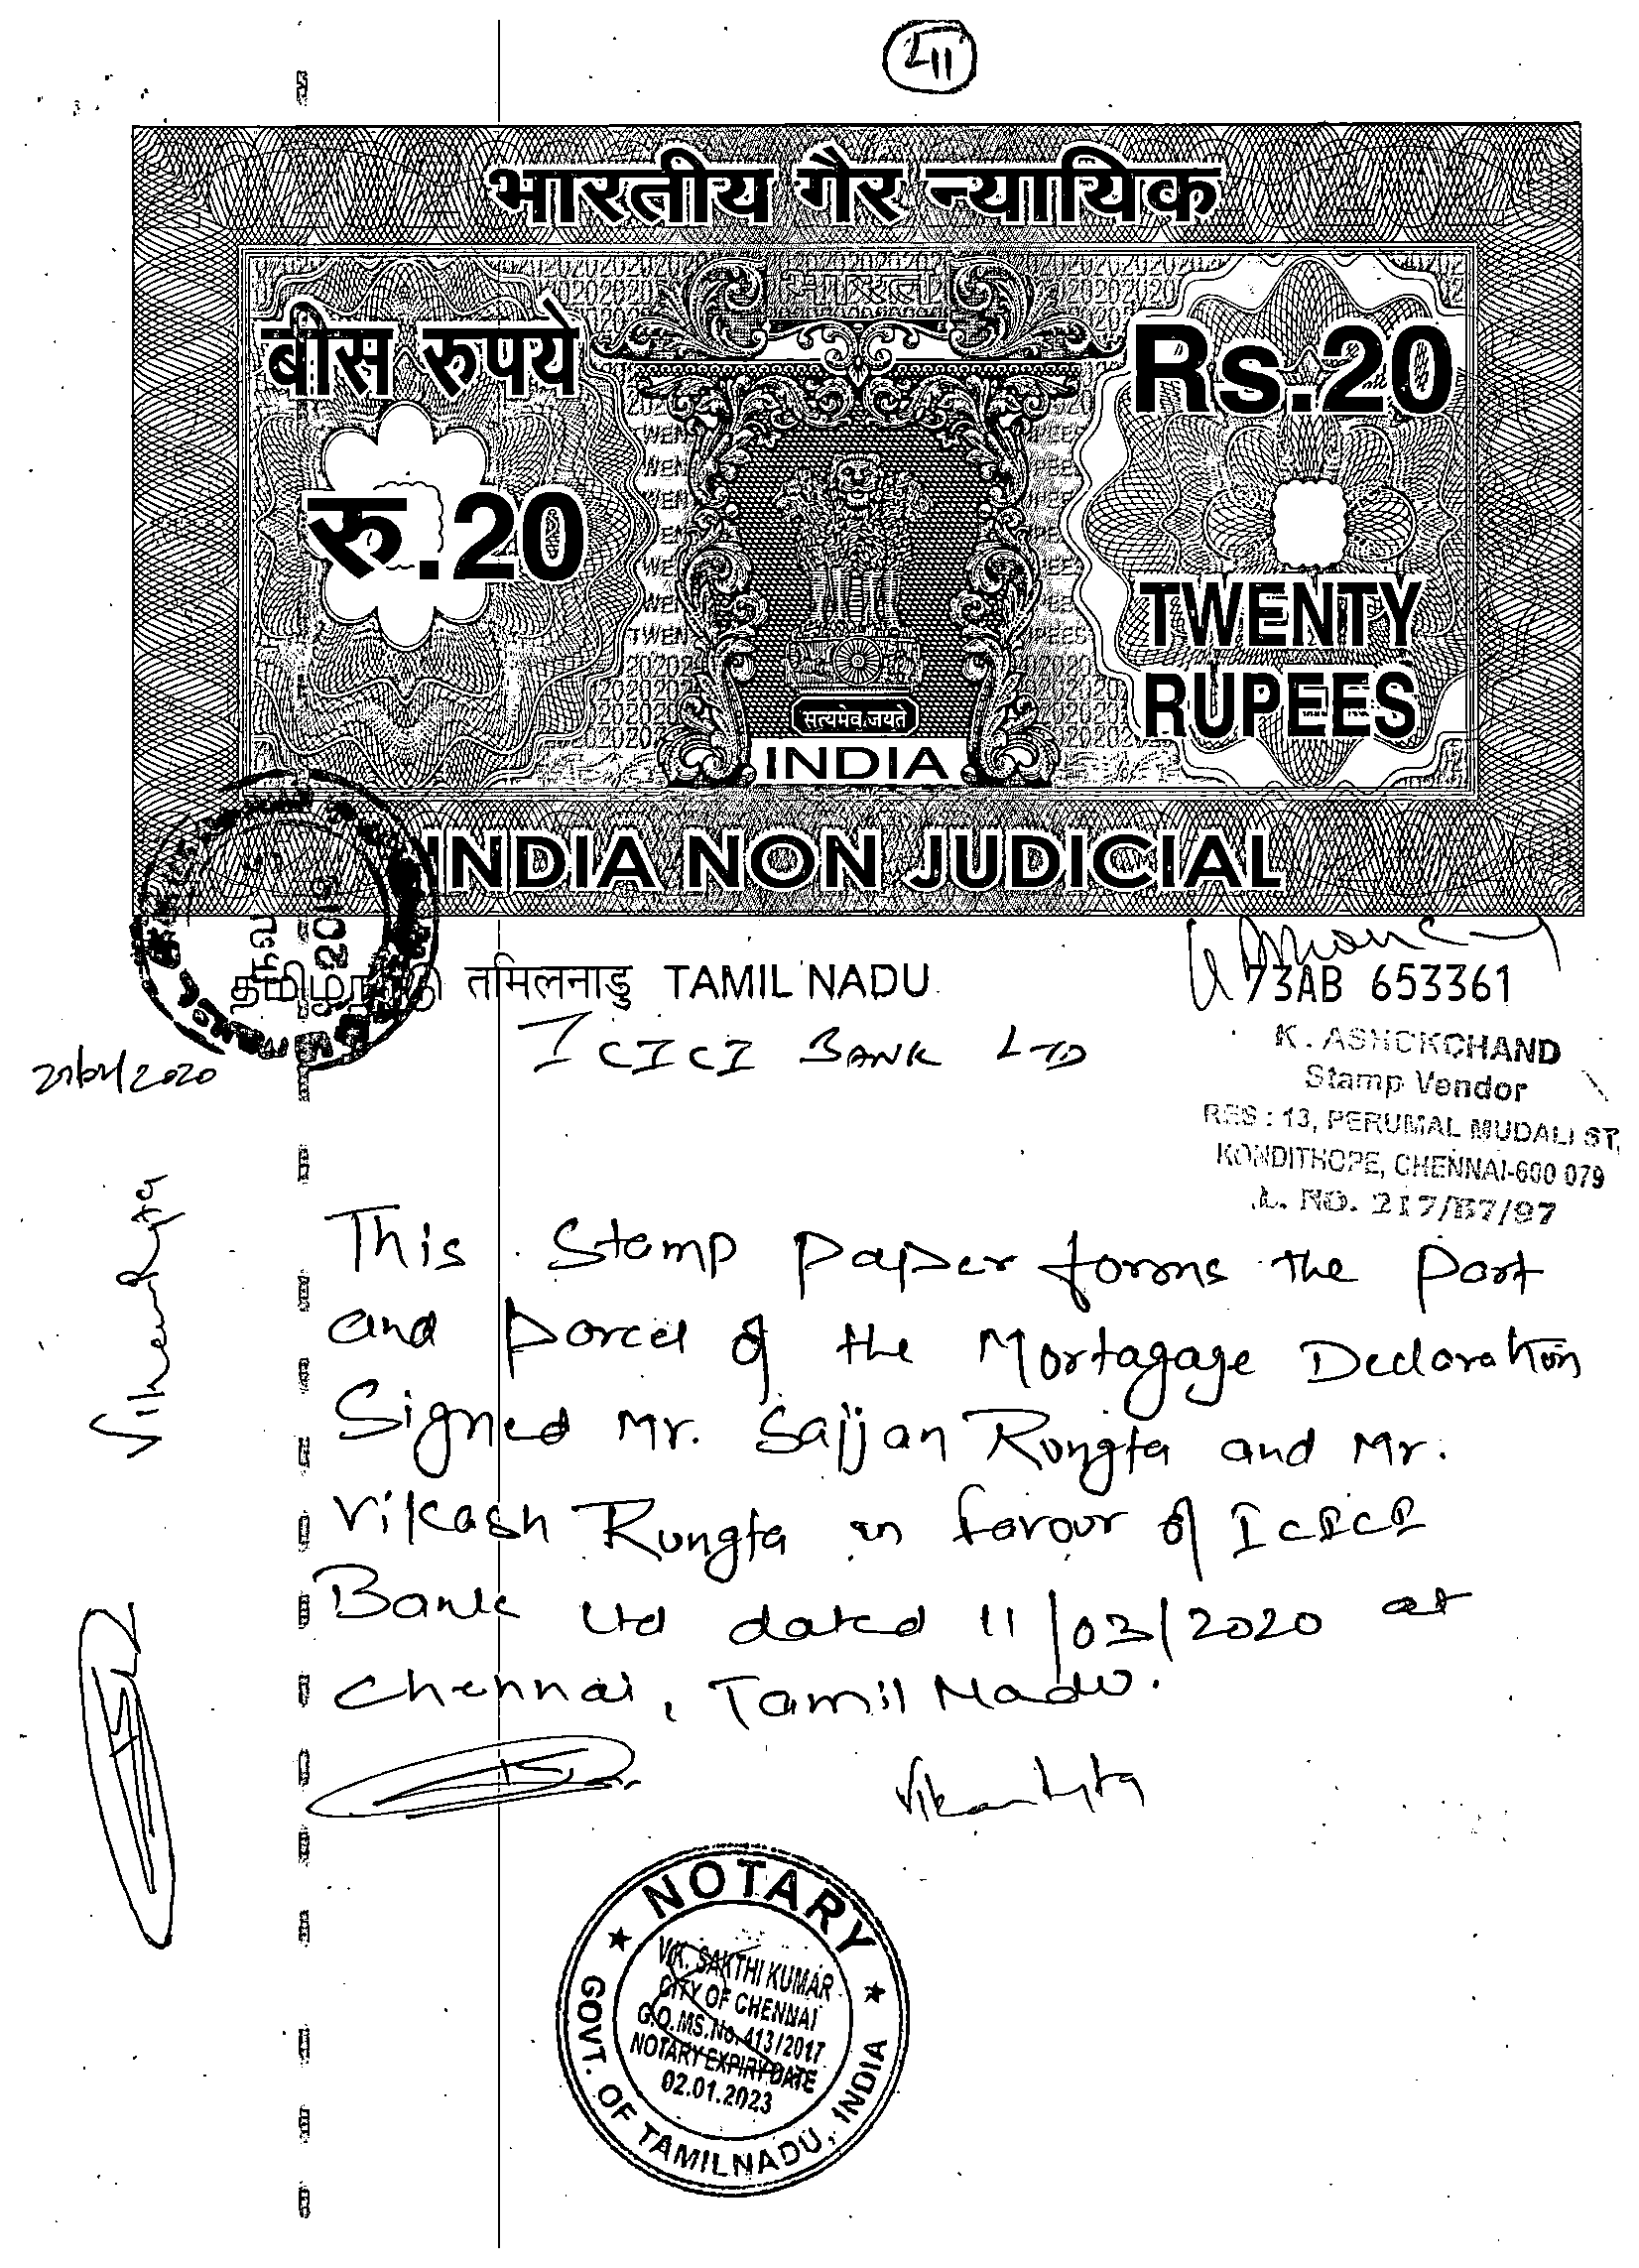 भारतीय गैर न्यायिक
भारत
बीस रुपये
Rs.20
रु.20
TWENTY
RUPEES
सत्यमेव जयते
INDIA
INDIA NON JUDICIAL
தமிழ்நாடு तमिलनाडु TAMIL NADU
73AB 653361
ICICI BANK LTD
K. ASHOKCHAND
Stamp Vendor
RES : 13, PERUMAL MUDALI ST,
KONDITHOPE, CHENNAI-600 079
L. NO. 217/B7/97
This Stamp paper forms the part
and parcel of the Mortagage Declaration
Signed Mr. Sajjan Rungta and Mr.
Vikash Rungta in favour of ICICI
Bank Ltd dated 11/03/2020 at
Chennai, Tamil Nadu.
NOTARY
V.K. SAKTHI KUMAR
CITY OF CHENNAI
G.O.MS.No.413/2017
NOTARY EXPIRY DATE
02.01.2023
GOVT. OF TAMILNADU, INDIA